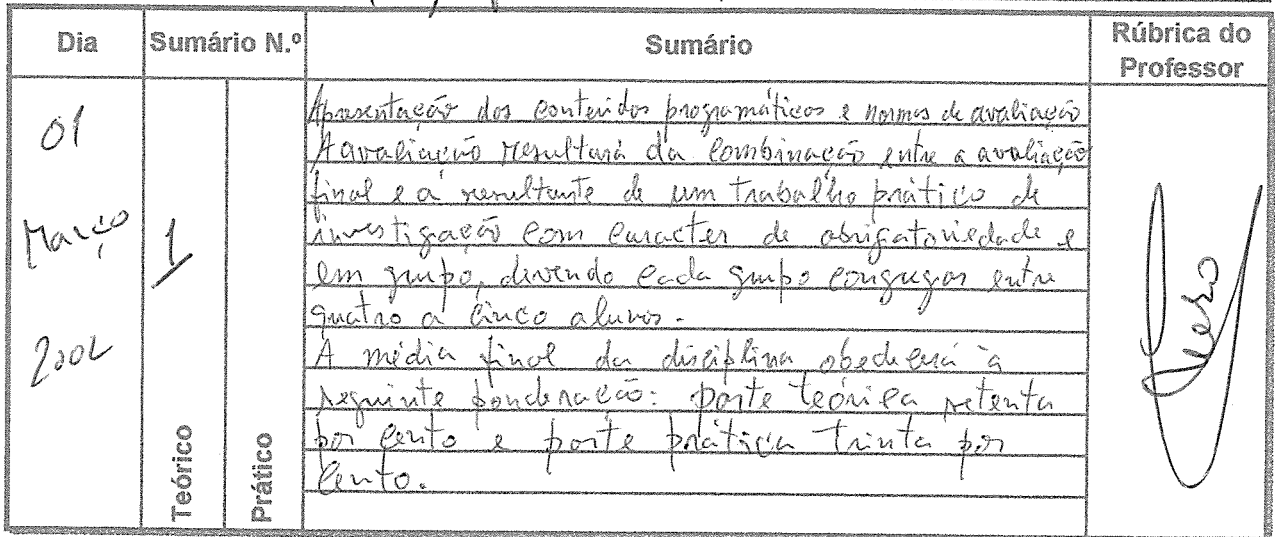 Dia
Sumário N.º
Sumário
Rúbrica do
Professor
01
Março
2002
1
Teórico
Prático
Apresentação dos conteúdos programáticos e normas de avaliação
A avaliação resultará da combinação entre a avaliação
final e a resultante de um trabalho prático de
investigação com caracter de obrigatoriedade e
em grupo, devendo cada grupo congregar entre
quatro a cinco alunos.
A média final da disciplina obedecerá à
seguinte ponderação: parte teórica setenta
por cento e parte prática trinta por
cento.